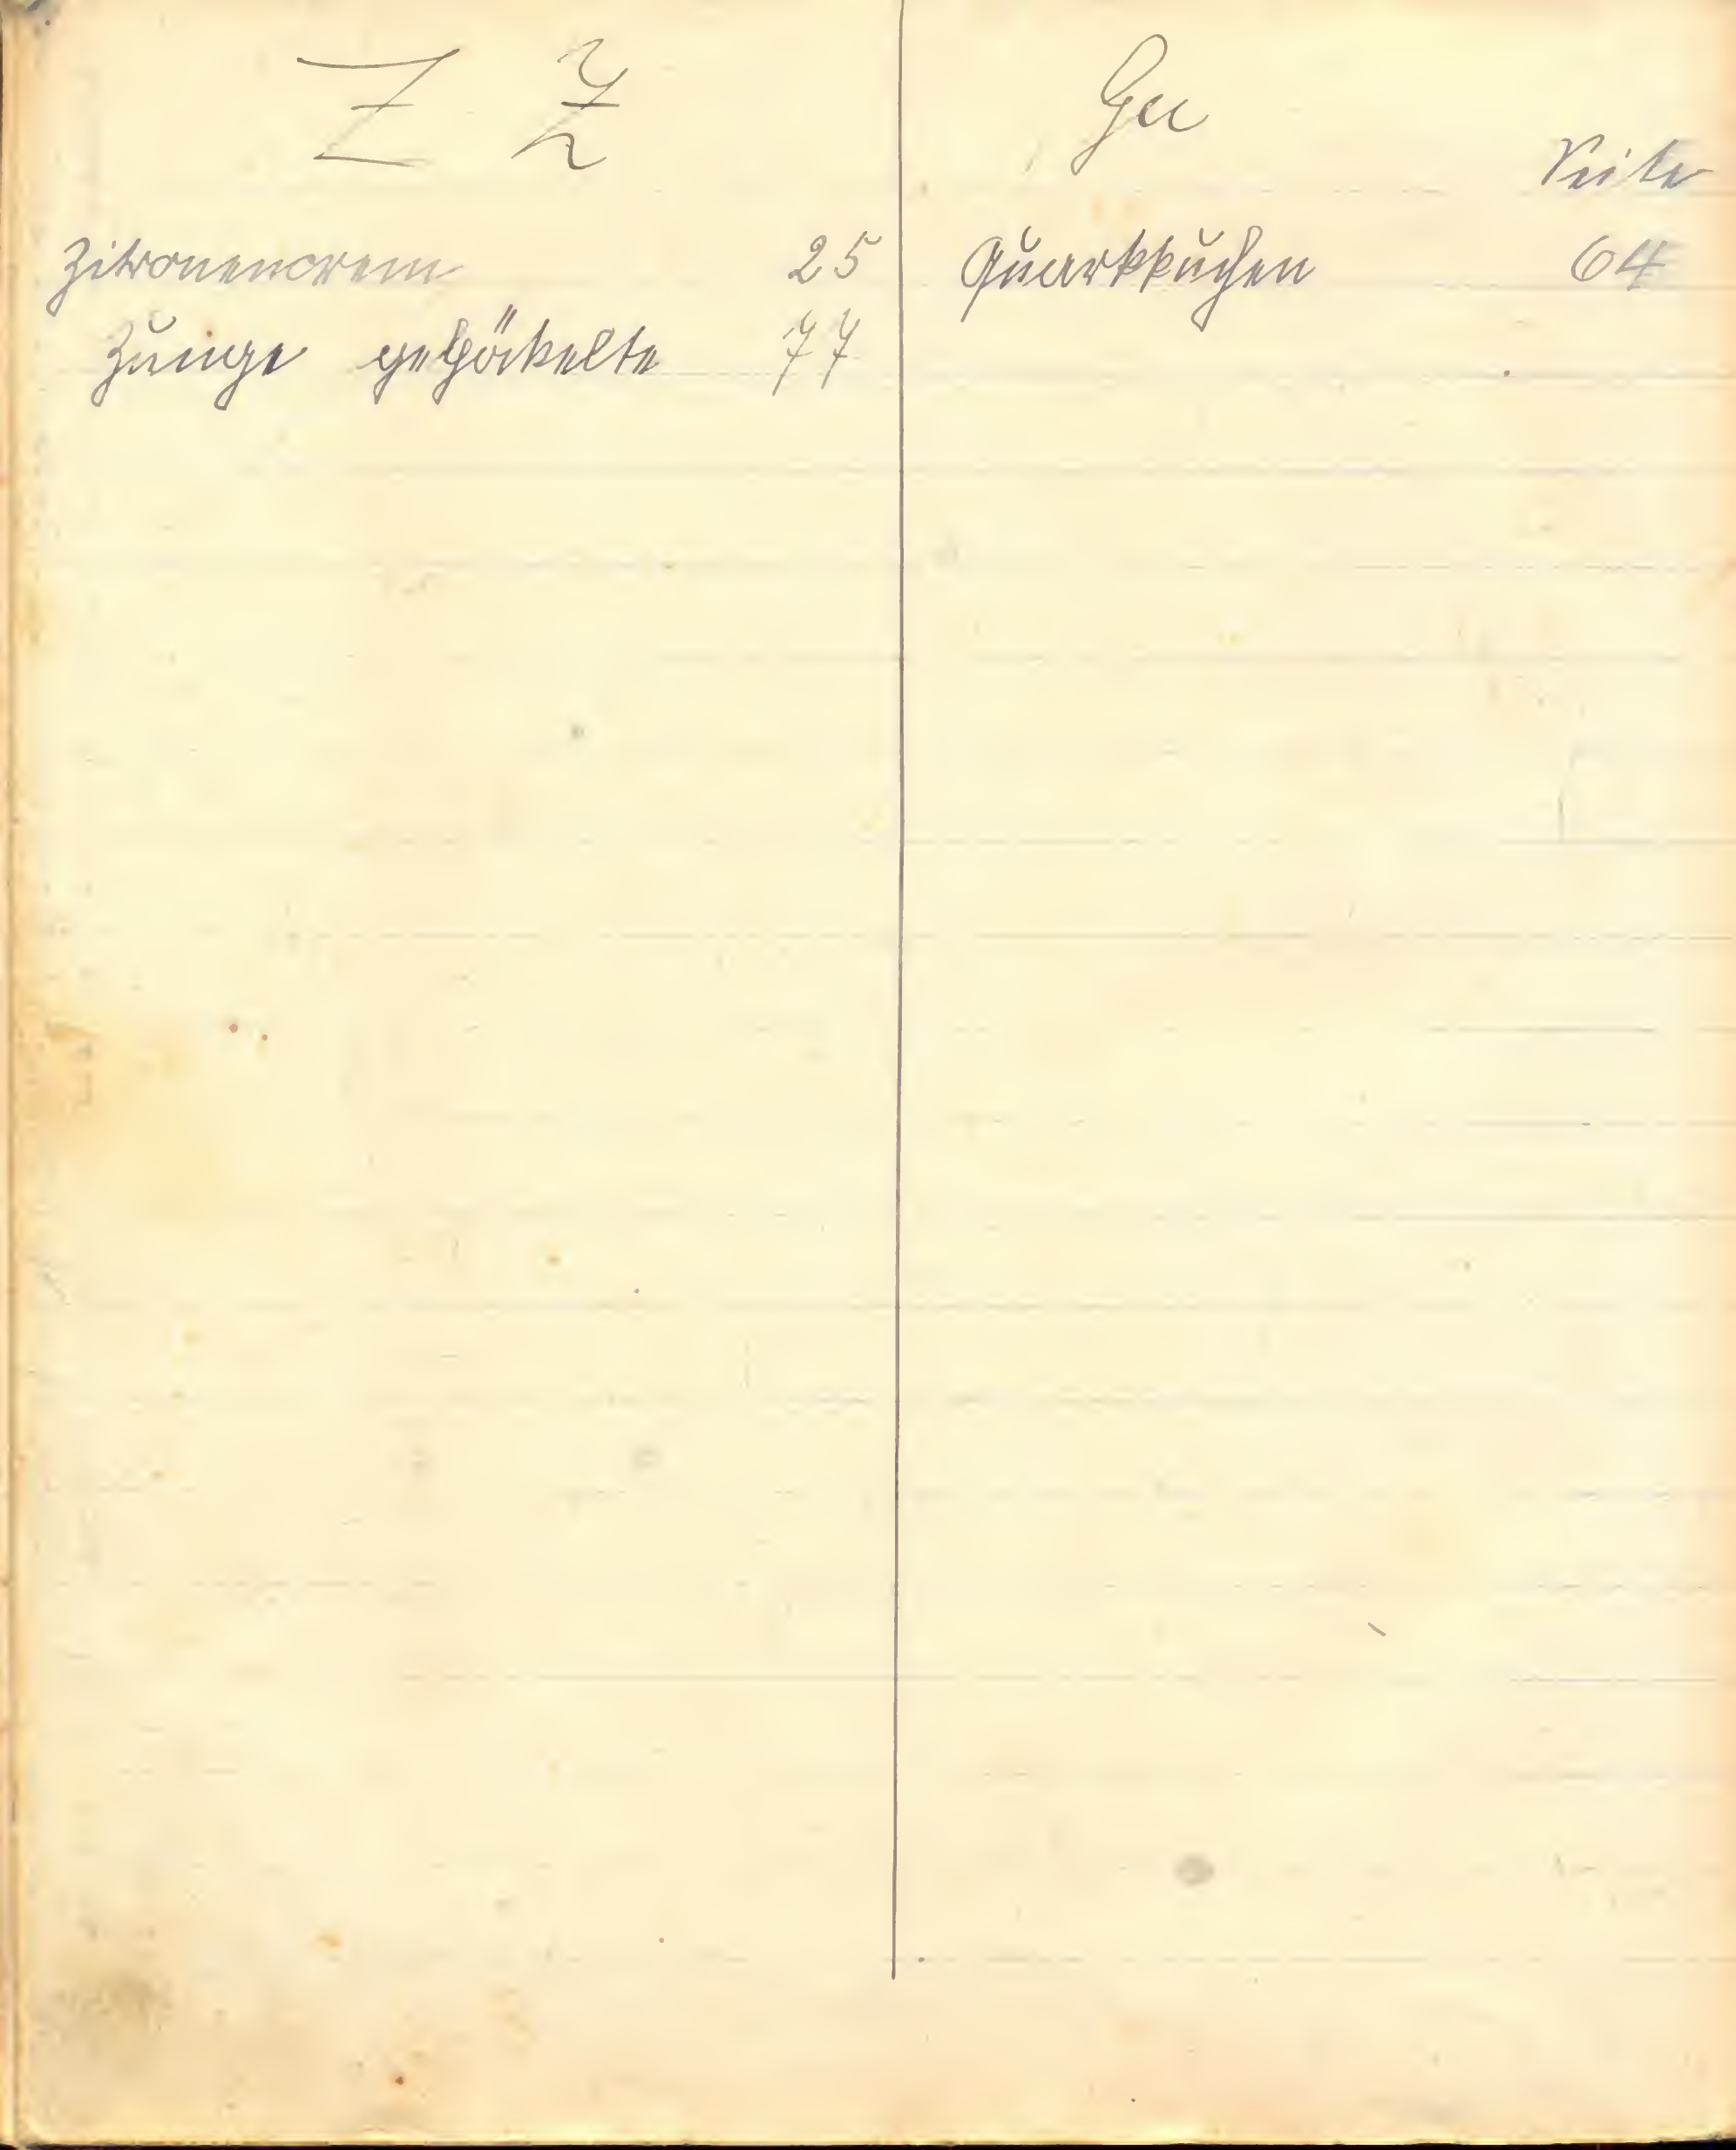 Z Z
Zitronencrem 25
Zunge gepöckelte 77
Qu
Seite
Quarkkuchen 64